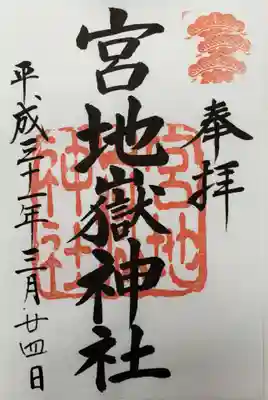 奉拝
宮地嶽神社
平成三十一年三月廿四日
宮地
神社